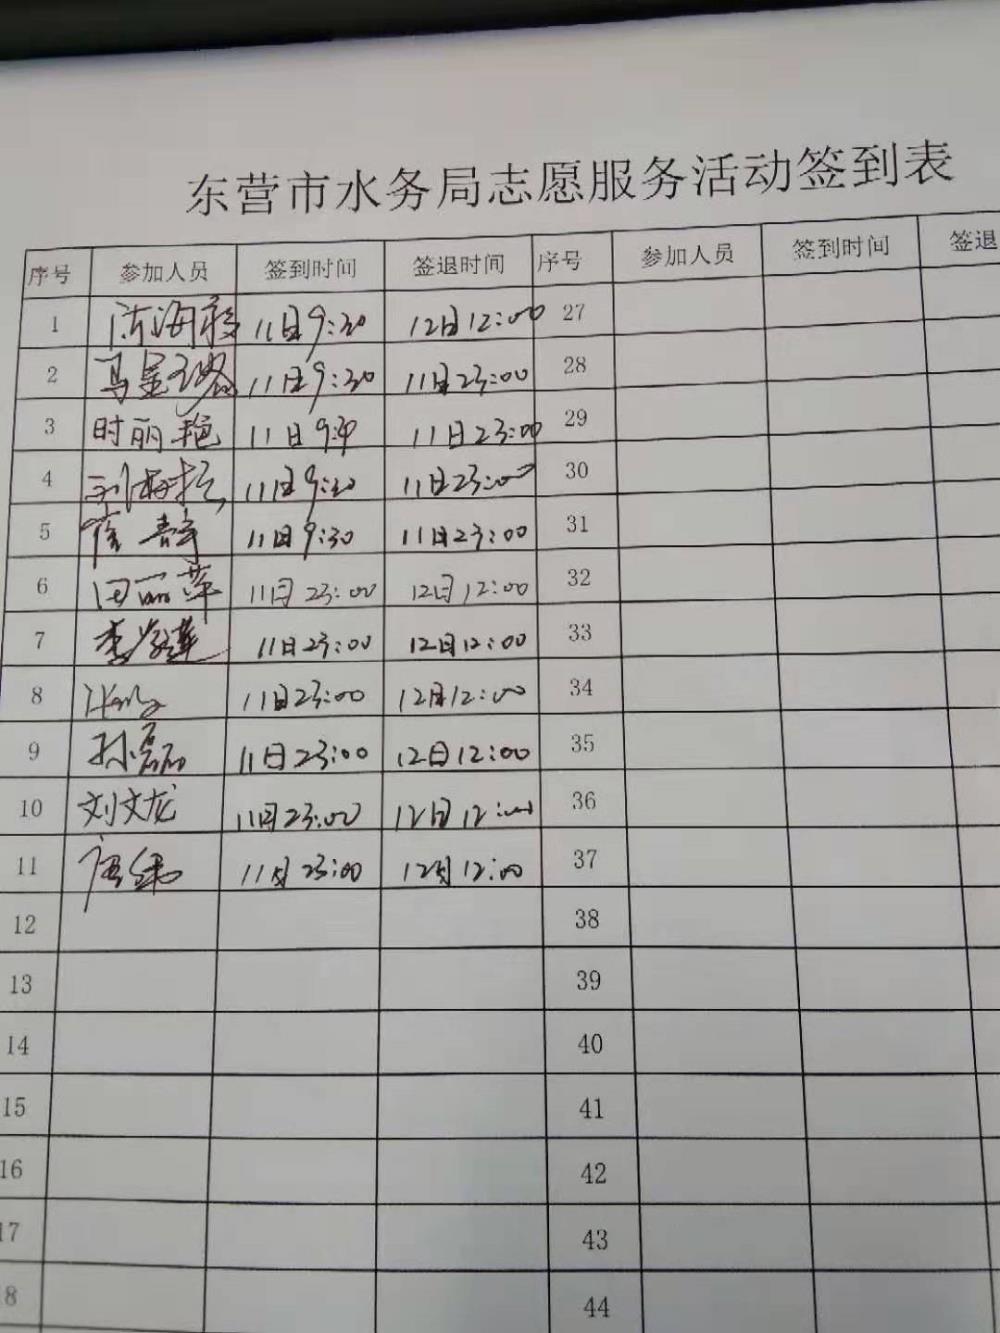 东营市水务局志愿服务活动签到表
序号 参加人员 签到时间 签退时间 序号 参加人员 签到时间 签退
1 11日9:30 12日12:00 27
2 马星 11日9:30 11日23:00 28
3 时丽艳 11日9:30 11日23:00 29
4 刘海 11日9:30 11日23:00 30
5 徐静 11日9:30 11日23:00 31
6 田丽萍 11日23:00 12日12:00 32
7 李 莲 11日23:00 12日12:00 33
8 11日23:00 12日12:00 34
9 孙磊 11日23:00 12日12:00 35
10 刘文龙 11日23:00 12日12:00 36
11 唐 11日23:00 12日12:00 37
12 38
13 39
14 40
15 41
16 42
17 43
18 44